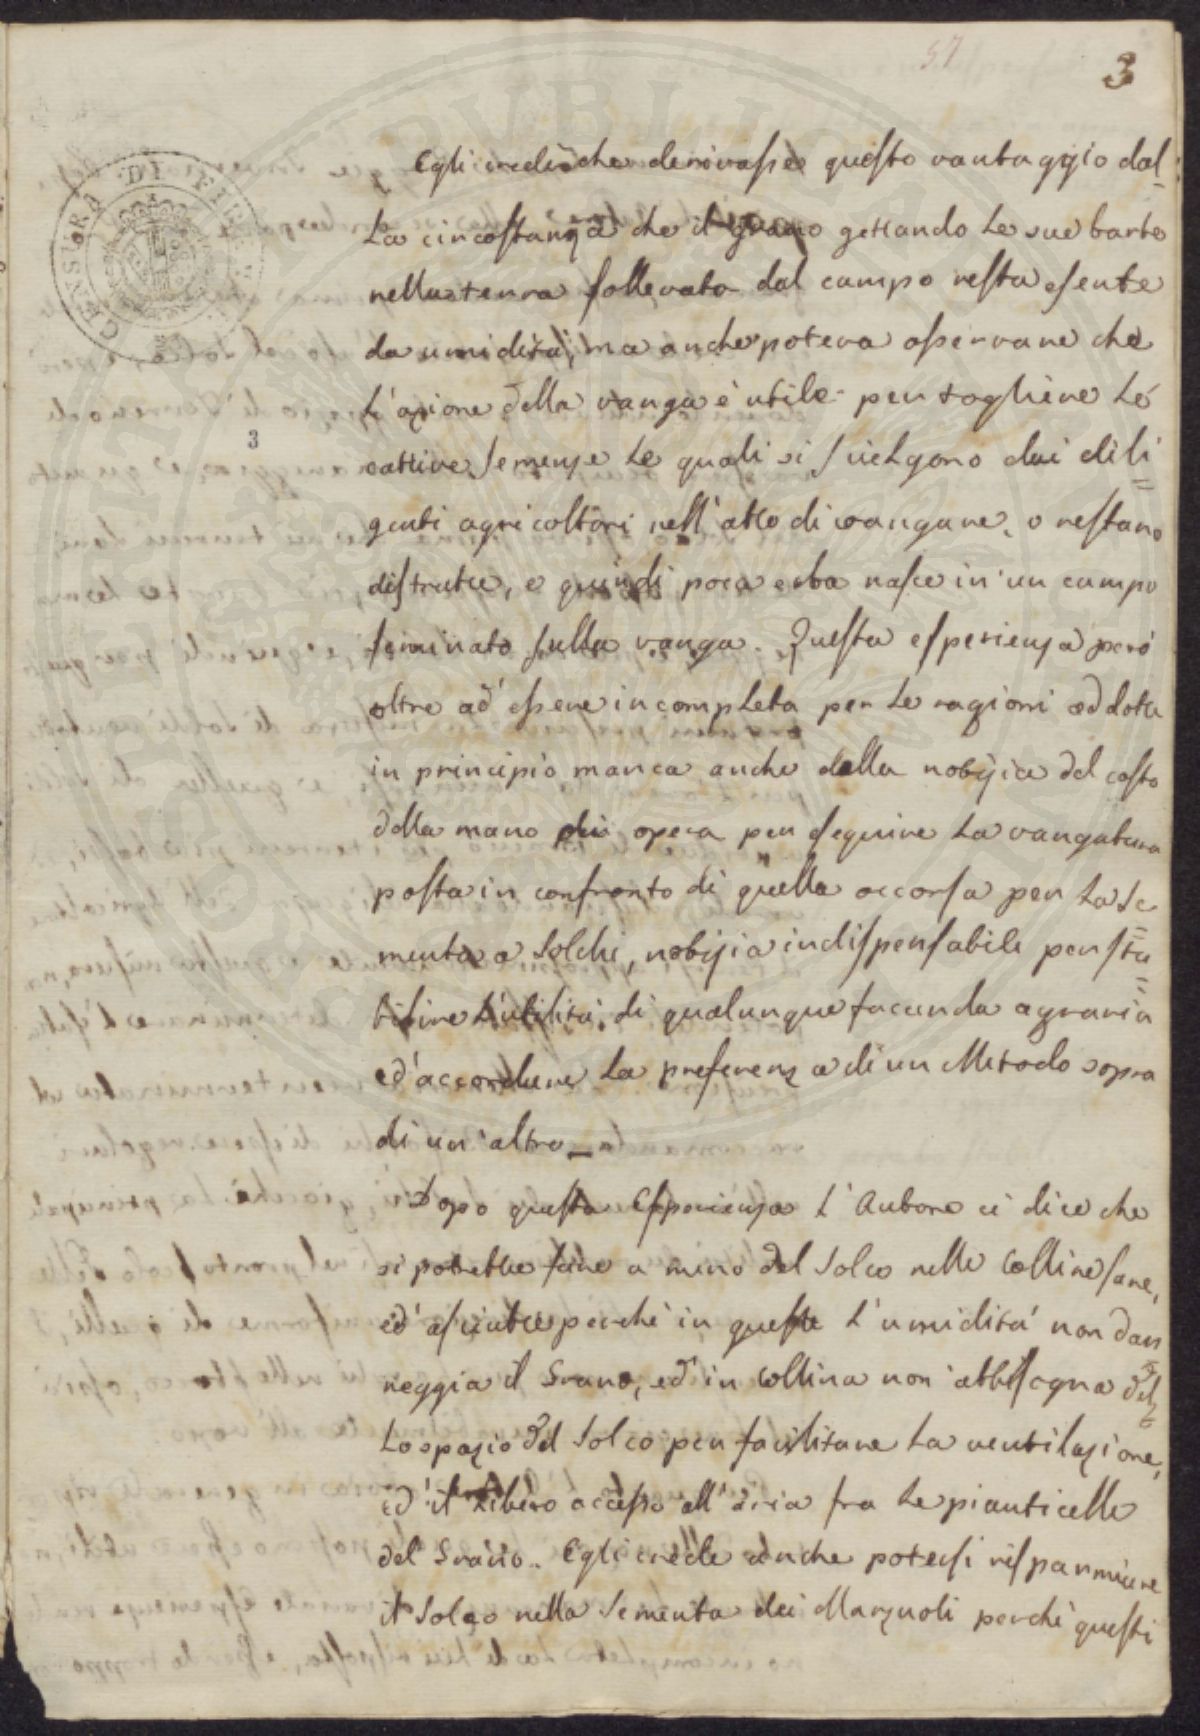 57
3
Egli crede che derivasse questo vantaggio dal=
la circostanza che il grano gettando le sue barbe
nella terra sollevata dal campo resta esente
da umidità, ma anche poteva osservare che
l'azione della vanga è utile per togliere le
3
cattive semenze le quali si svelgono dai dili=
genti agricoltori nell'atto di vangare, o restano
distrutte, e quindi poca erba nasce in un campo
seminato sulla vanga. Questa esperienza però
oltre ad' essere incompleta per le ragioni addotte
in principio manca anche della notizia del costo
della mano di opera per eseguire la vangatura
posta in confronto di quella occorsa per la se=
menta a solchi, notizia indispensabile per sta=
bilire l'utilità di qualunque facenda agraria
ed' accordare la preferenza di un Metodo sopra
di un' altro_
Dopo questa Esperienza l'Autore ci dice che
si potrebbe fare a meno del solco nelle Colline sane,
ed' asciutte perchè in queste l'umidità non dan
neggia il Grano, ed' in Collina non abbisogna del=
lo spazio del solco per facilitare la ventilazione,
ed' il libero accesso all'aria fra le pianticelle
del Grano. Egli crede anche potersi risparmiare
il solco nella sementa dei Marzuoli perchè questi